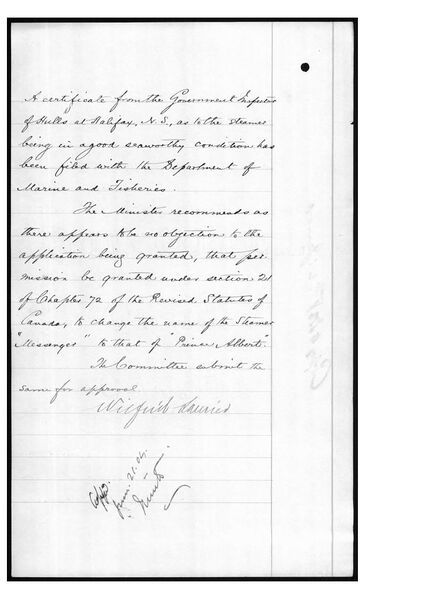 A certificate from the Government Inspector
of Hulls at Halifax, N.S., as to the steamer
being in a good seaworthy condition has
been filed with the Department of
Marine and Fisheries.
The Minister recommends as
there appears to be no objection to the
application being granted, that per-
mission be granted under section 21
of Chapter 72 of the Revised Statutes of
Canada, to change the name of the Steamer
"Messenger" to that of "Prince Albert".
The Committee submit the
same for approval
Wilfrid Laurier
21.04.
Minto